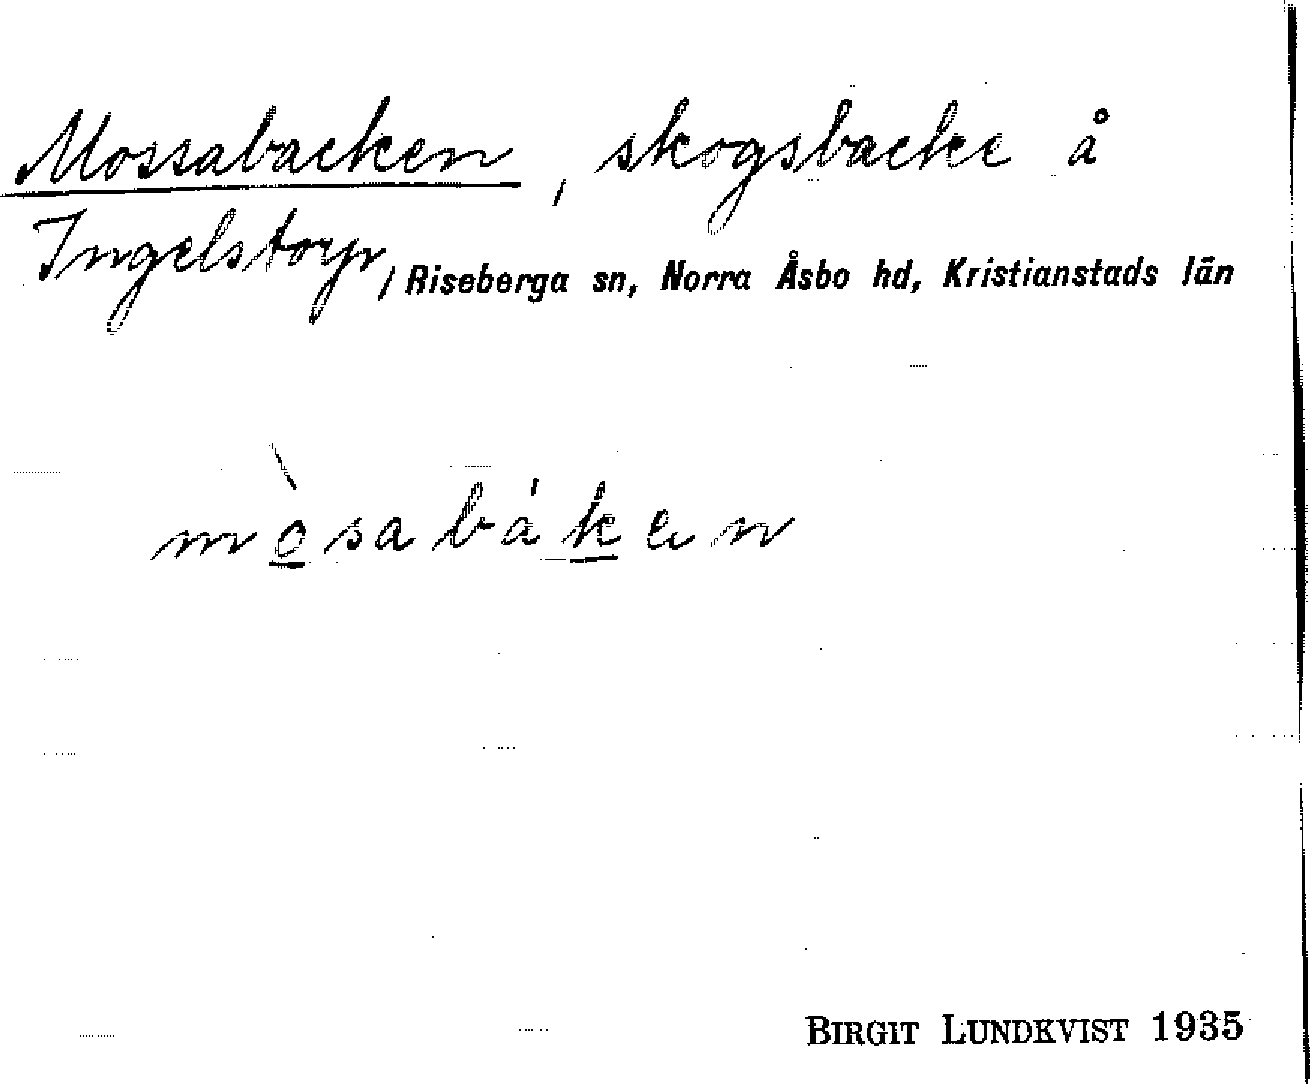 Mossabacken, skogsbacke å
Ingelstorp, Riseberga sn, Norra Åsbo hd, Kristianstads län
mòsabáken
BIRGIT LUNDKVIST 1935